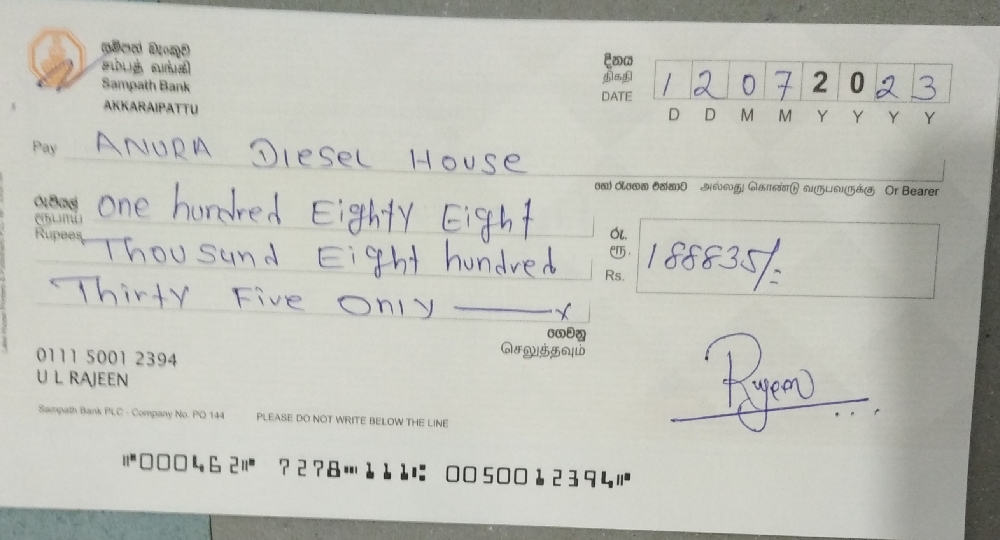 සම්පත් බැංකුව
சம்பத் வங்கி
Sampath Bank
AKKARAIPATTU
දිනය
திகதி
DATE
1 2 0 7 2 0 2 3
D D M M Y Y Y Y
Pay ANURA Diesel House
හෝ රැගෙන එන්නාට அல்லது கொண்டு வருபவருக்கு Or Bearer
රුපියල්
ரூபாய்
Rupees
one hundred Eighty Eight
Thousund Eight hundred
Thirty Five Only
රු.
ரூ.
Rs.
188835/=
ගෙවනු
செலுத்தவும்
0111 5001 2394
U L RAJEEN
Rajeen
Sampath Bank PLC - Company No. PQ 144 PLEASE DO NOT WRITE BELOW THE LINE
⑈000462⑈ 7278⑉111⑆ 0050012394⑈